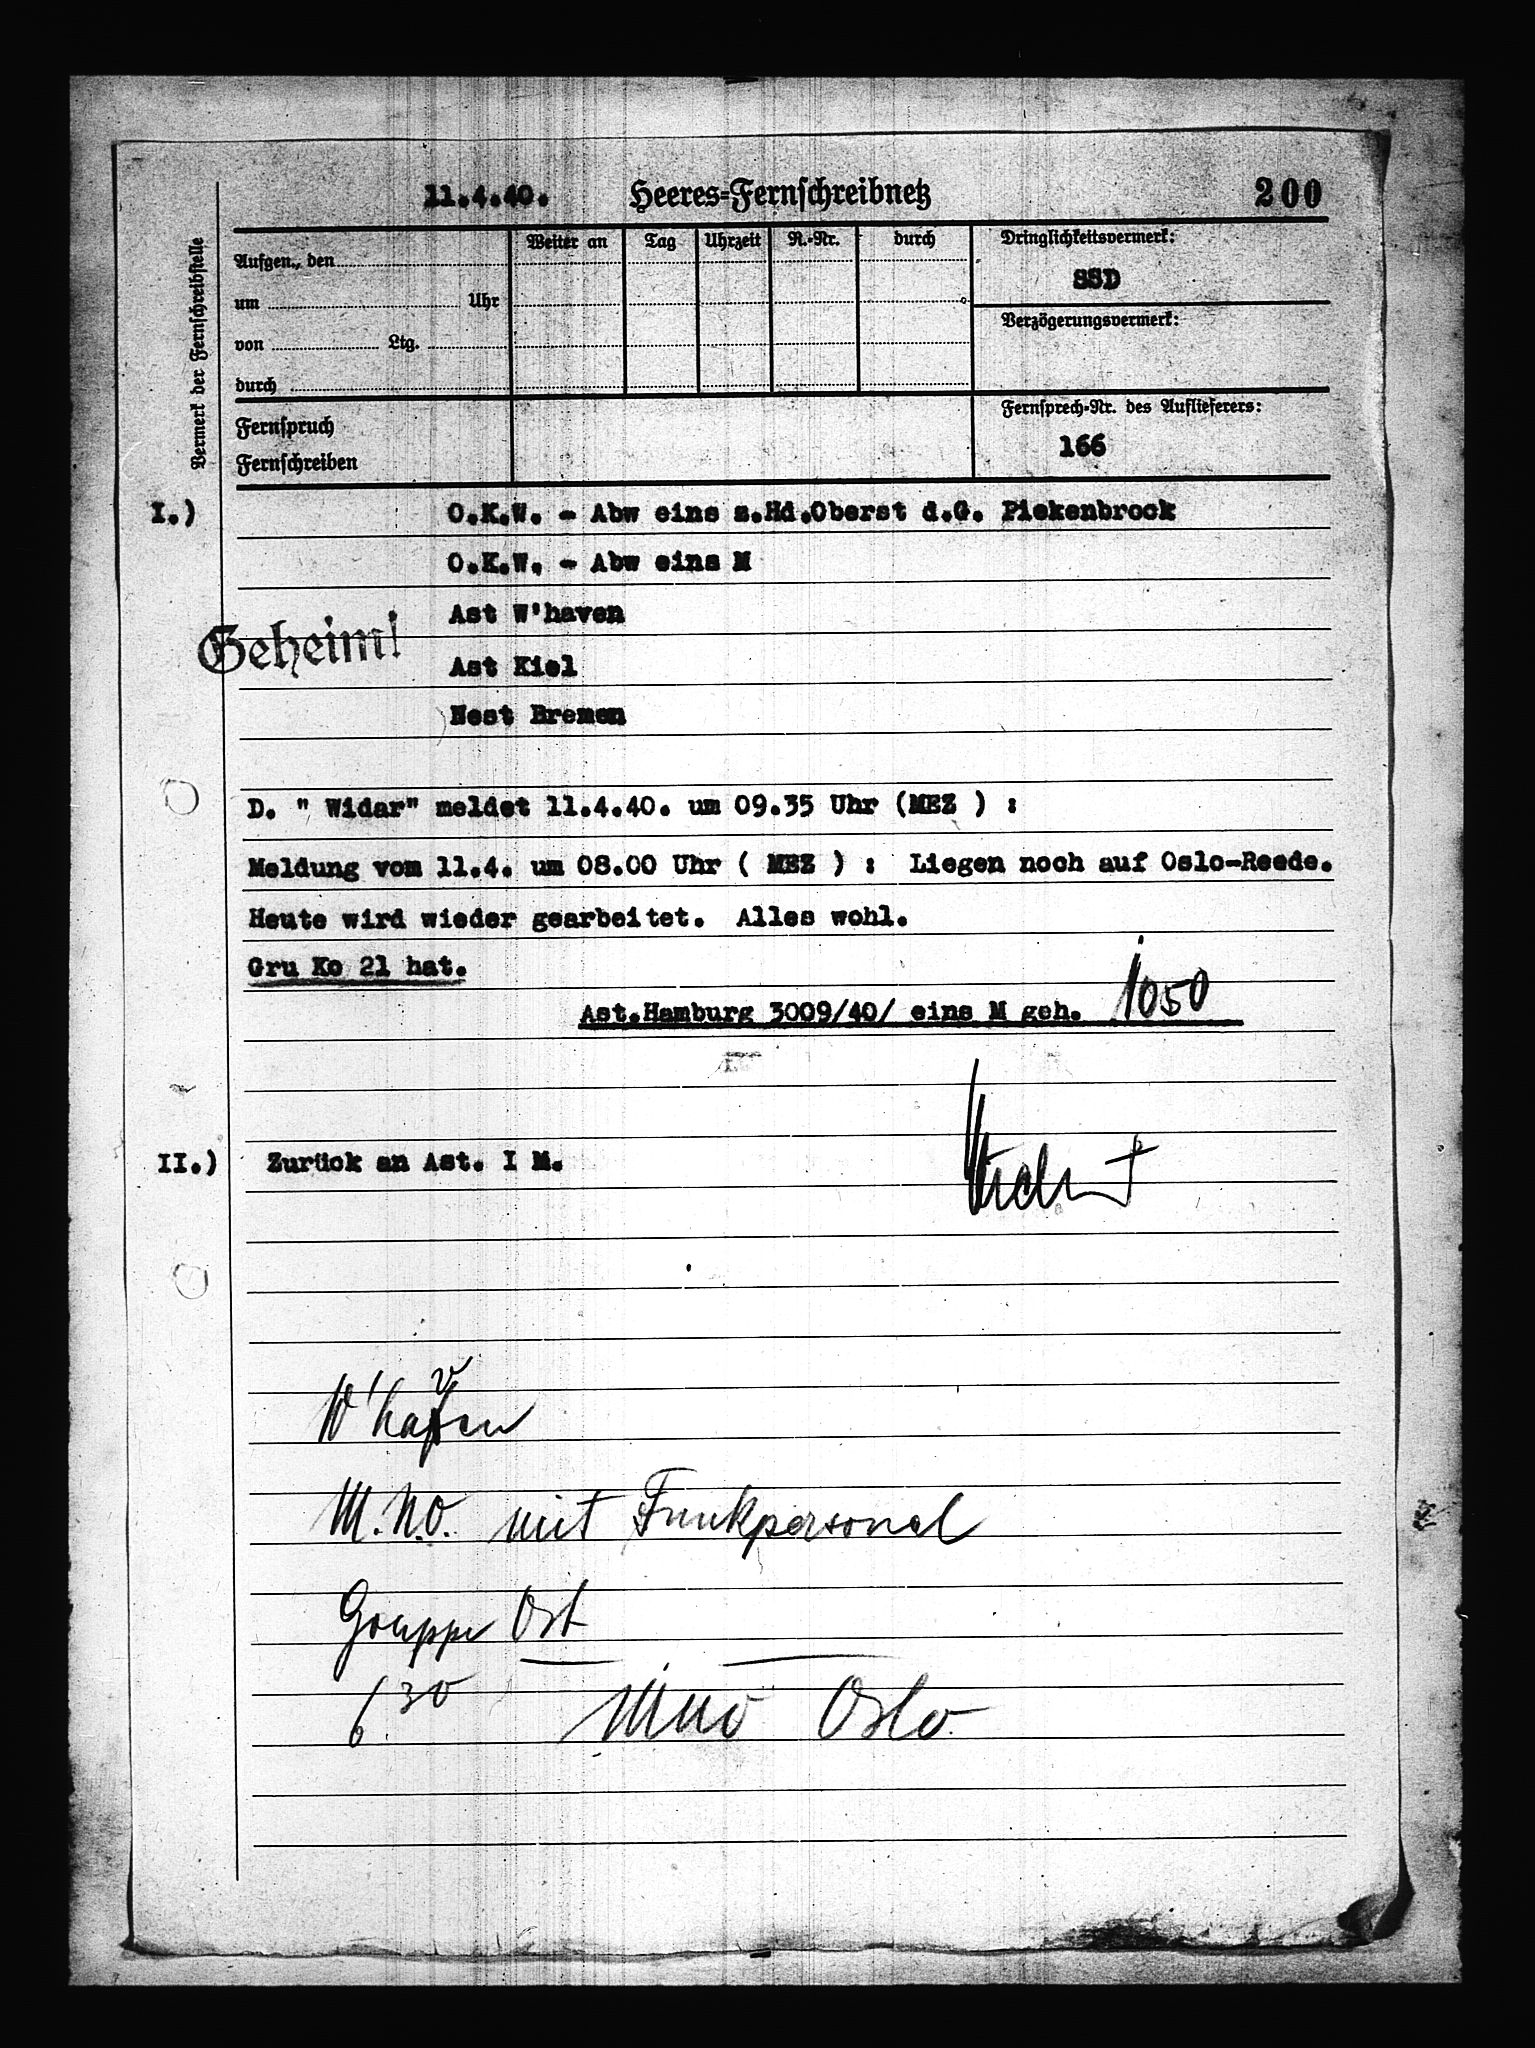 11.4.40. Heeres-Fernschreibnetz 200
Vermerk der Fernschreibstelle
Aufgen., den
um Uhr
von Ltg.
durch
Weiter an Tag Uhrzeit R.-Nr. durch
Dringlichkeitsvermerk:
SSD
Verzögerungsvermerk:
Fernspruch
Fernschreiben
Fernsprech-Nr. des Auflieferers:
166
I.) O.K.W. - Abw eins z.Hd.Oberst d.G. Piekenbrock
O.K.W. - Abw eins M
Ast W'haven
Geheim!
Ast Kiel
Nest Bremen
D. " Widar" meldet 11.4.40. um 09.35 Uhr (MEZ ) :
Meldung vom 11.4. um 08.00 Uhr ( MEZ ) : Liegen noch auf Oslo-Reede.
Heute wird wieder gearbeitet. Alles wohl.
Gru Ko 21 hat.
Ast.Hamburg 3009/40/ eins M geh. 1050
II.) Zurück an Ast. I M.
W'haven
M.N.O. mit Funkpersonal
Gruppe Ost
6 30 Mno Oslo